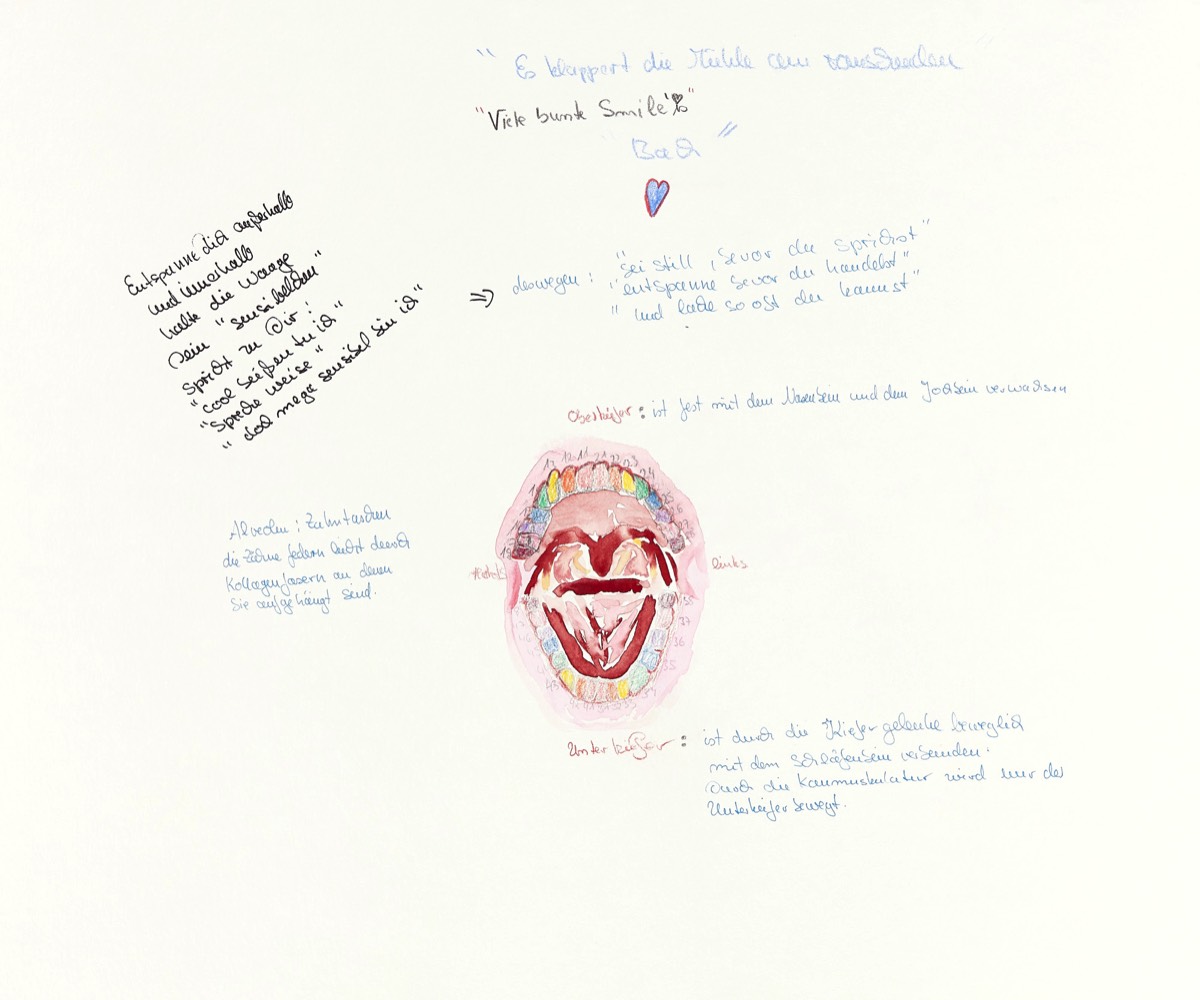 "Es klappert die Mühle am rauschenden
"Viele bunte Smile's"
Bach"
Entspanne dich außerhalb
und innerhalb
halte die Waage
Dein "sensibelchen"
spricht zu Dir!
"cool beißen tu ich"
"Spreche weise"
"das mega sensibel bin ich"
⇒ deswegen: "sei still, bevor du sprichst"
"entspanne bevor du handelst"
"und lache so oft du kannst"
Oberkiefer: ist fest mit dem Nasenbein und dem Jochbein verwachsen
13 12 11 21 22 23 24
26
rechts
links
Alveolen: Zahntaschen
die Zähne federn leicht durch
Kollagenfasern an denen
Sie aufgehängt sind.
37
36
35
43
Unterkiefer: ist durch die Kiefergelenke beweglich
mit dem Schläfenbein verbunden.
Durch die Kaumuskulatur wird nur der
Unterkiefer bewegt.